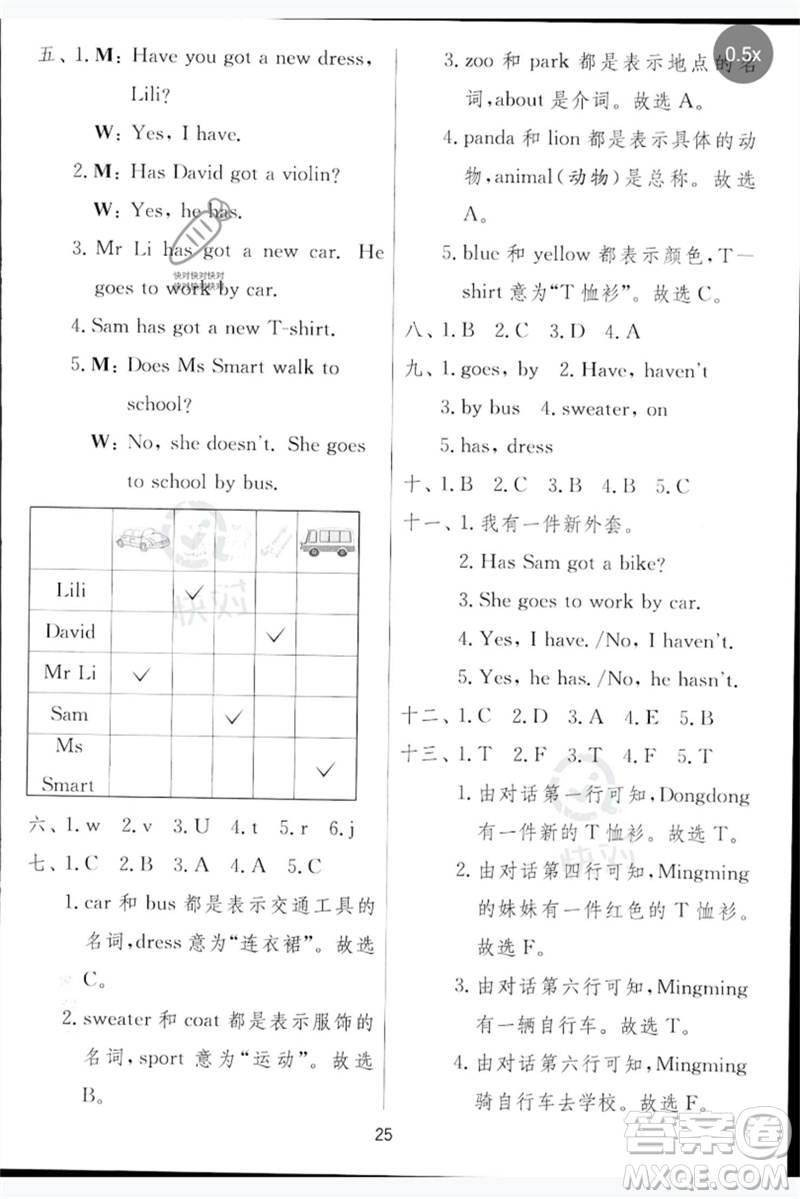 五、1. M: Have you got a new dress,
Lili?
W: Yes, I have.
2. M: Has David got a violin?
W: Yes, he has.
3. Mr Li has got a new car. He
goes to work by car.
4. Sam has got a new T-shirt.
5. M: Does Ms Smart walk to
school?
W: No, she doesn't. She goes
to school by bus.
Lili ✓
David ✓
Mr Li ✓
Sam ✓
Ms
Smart ✓
六、1. w 2. v 3. U 4. t 5. r 6. j
七、1. C 2. B 3. A 4. A 5. C
1. car 和 bus 都是表示交通工具的
名词,dress 意为“连衣裙”。故选
C。
2. sweater 和 coat 都是表示服饰的
名词,sport 意为“运动”。故选
B。
3. zoo 和 park 都是表示地点的名
词,about 是介词。故选 A。
4. panda 和 lion 都是表示具体的动
物,animal(动物)是总称。故选
A。
5. blue 和 yellow 都表示颜色,T—
shirt 意为“T 恤衫”。故选 C。
八、1. B 2. C 3. D 4. A
九、1. goes, by 2. Have, haven't
3. by bus 4. sweater, on
5. has, dress
十、1. B 2. C 3. C 4. B 5. C
十一、1. 我有一件新外套。
2. Has Sam got a bike?
3. She goes to work by car.
4. Yes, I have. /No, I haven't.
5. Yes, he has. /No, he hasn't.
十二、1. C 2. D 3. A 4. E 5. B
十三、1. T 2. F 3. T 4. F 5. T
1. 由对话第一行可知,Dongdong
有一件新的 T 恤衫。故选 T。
2. 由对话第四行可知,Mingming
的妹妹有一件红色的 T 恤衫。
故选 F。
3. 由对话第六行可知,Mingming
有一辆自行车。故选 T。
4. 由对话第六行可知,Mingming
骑自行车去学校。故选 F。
25
0.5x
快对快对快对
快对快对快对
快对
快对
答案卷
MXQE.COM